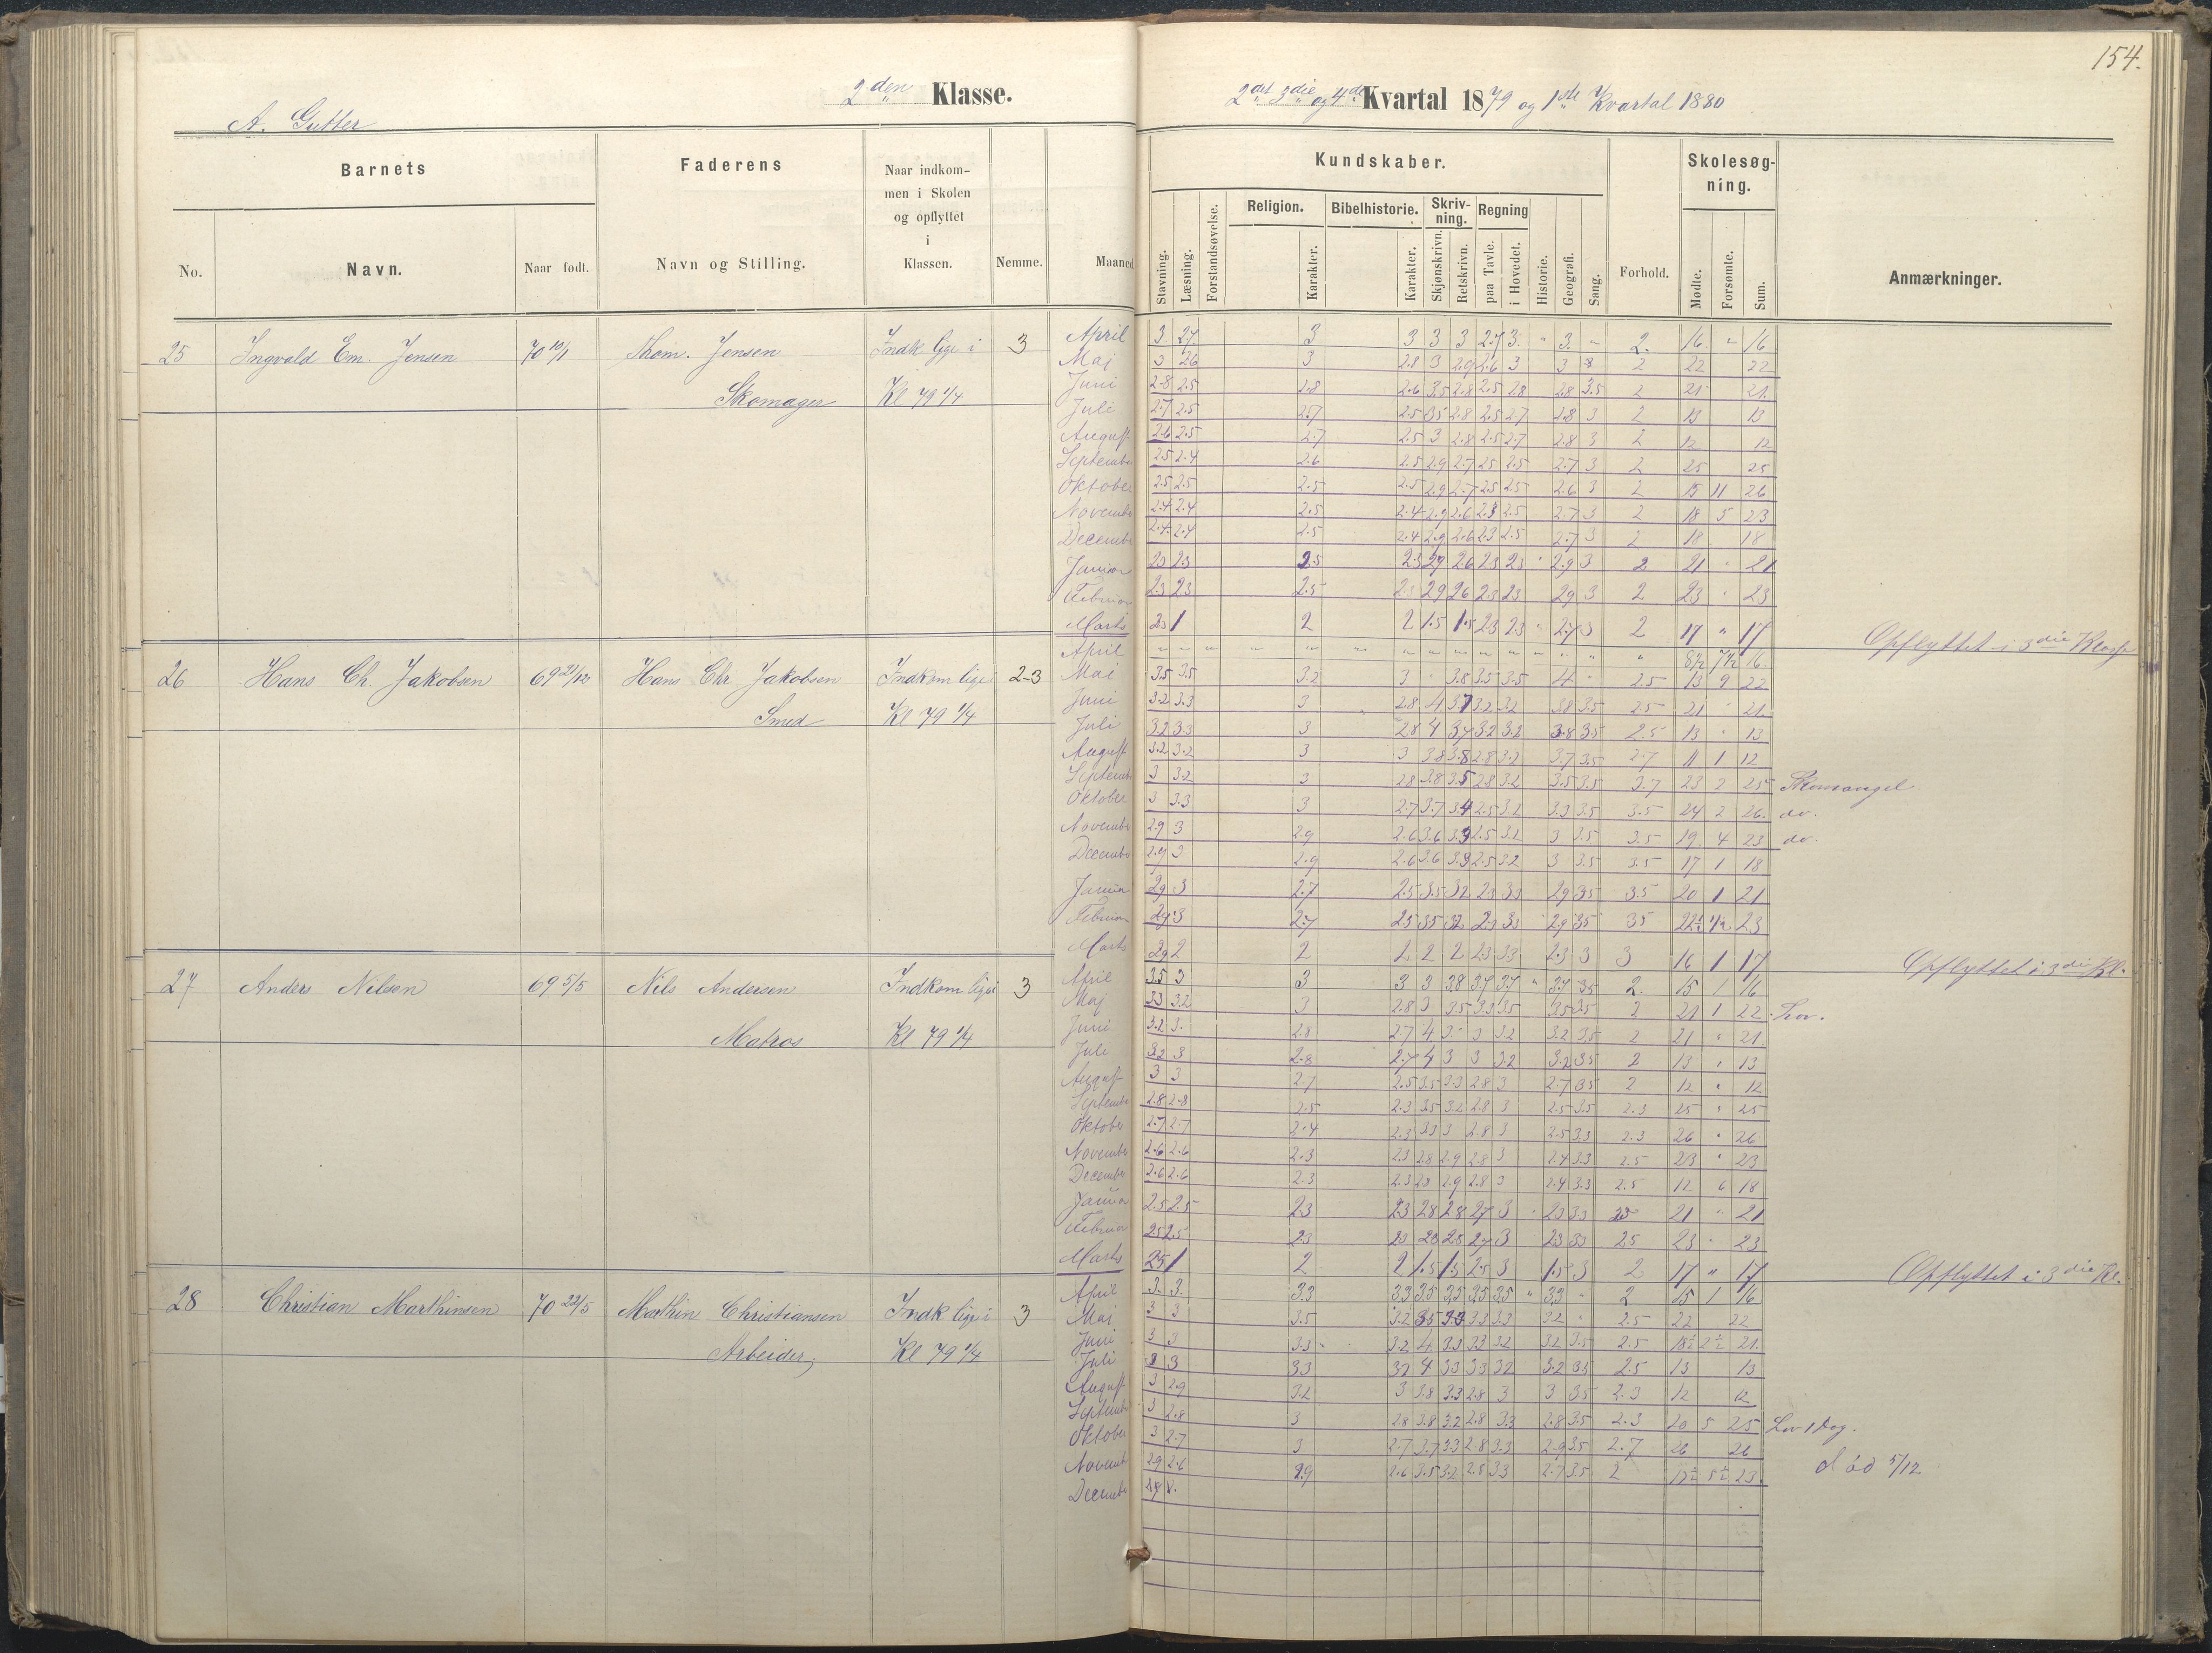 154.
2den Klasse.
2det 3die og 4de Kvartal 1879 og 1ste Kvartal 1880
A. Gutter
Barnets
Faderens
Naar indkom-
men i Skolen
og opflyttet
i
Klassen.
Kundskaber.
Skolesøg-
ning.
Religion. Bibelhistorie. Skriv-
ning. Regning
No. Navn. Naar født. Navn og Stilling. Nemme. Maaned
Stavning. Læsning. Forstandsøvelse. Karakter. Karakter. Skjønskrivn. Retskrivn. paa Tavle. i Hovedet. Historie. Geografi. Sang. Forhold. Mødte. Forsømte. Sum. Anmærkninger.
25 Ingvald Em. Jensen 70 10/1 Thom. Jensen Indk lige i 3 April 3. 2.7. 3 3 3 3 2.7 3. " 3. " 2. 16. " 16
Maj 3 2.6 3 2.8 3 2.9 2.6 3 3 3 2 22 22
Skomager Kl 79 1/4
Juni 2.8 2.5 2.8 2.6 3.5 2.8 2.5 2.8 2.8 3.5 2 21 21.
Juli 2.7 2.5 2.7 2.5 3.5 2.8 2.5 2.7 2.8 3 2 13 13
August 2.6 2.5 2.7 2.5 3 2.8 2.5 2.7 2.8 3 2 12 12
Septembe 2.5 2.4 2.6 2.5 2.9 2.7 2.5 2.5 2.7 3 2 25 25
Oktober 2.5 2.5 2.5 2.5 2.9 2.7 2.5 2.5 2.6 3 2 15 11 26
Novembe 2.4 2.4 2.5 2.4 2.9 2.6 2.3 2.5 2.7 3 2 18 5 23
Decembe 2.4 2.4 2.5 2.4 2.9 2.6 2.3 2.5 2.7 3 2 18 18
Januar 23 23 25 23 29 26 23 23 " 2.9 3 2 21 " 21
Februar 2.3 23 2.5 23 29 26 23 23 29 3 2 23 " 23
Marts 23 1 2 2 1.5 1.5 23 23 " 2.7 3 2 17 " 17 Opflyttet i 3die Klasse
26 Hans Ch. Jakobsen 69 21/12 Hans Chr Jakobsen Indkom lige i 2-3 April 8½ 7½ 16.
Maj 3.5 3.5 3.2 3 " 3.8 3.5 3.5 4 " 2.5 13 9 22
Smed Kl 79 1/4
Juni 3.2 3.3 3 2.8 4 3.7 3.2 3.2 3.8 3.5 2.5 21 " 21
Juli 3.2 3.3 3 2.8 4 3.7 3.2 3.2 3.8 3.5 2.5 13 " 13
August 3.2 3.2 3 3 3.8 3.8 2.8 3.2 3.7 3.5 2.7 11 1 12
Septemb 3 3.2 3 2.8 3.8 3.5 2.8 3.2 3.5 3.5 3.7 23 2 25 Skomangel
Oktober 3 3.3 3 2.7 3.7 3.4 2.5 3.1 3.3 3.5 3.5 24 2 26. do.
Novembe 2.9 3 2.9 2.6 3.6 3.3 2.5 3.1 3 3.5 3.5 19. 4 23 do.
Decembe 2.9 3 2.9 2.6 3.6 3.3 2.5 3.2 3 3.5 3.5 17 1 18
Januar 29 3 2.7 2.5 3.5 32 23 33 29 35 3.5 20 1 21
Februar 29 3 2.7 25 35 32 2.3 33 2.9 35 35 22½ ½ 23
Marts 29 2 2 2 2 2 23 33 2.3 3 3 16 1 17 Opflyttet i 3die Kl.
27 Anders Nilsen 69 5/5 Nils Andersen Indkom lige i 3 April 3.5 3 3 3 3 3.8 3.7 3.7 " 3.7 3.5 2. 15 1 16
Maj 3.3 3.2 3 2.8 3 3.5 3.5 3.5 3.5 3.5 2 21 1 22. Lov.
Matros Kl 79 1/4
Juni 3.2 3. 2.8 2.7 4 3 3 3.2 3.2 3.5 2 21 " 21.
Juli 3.2 3 2.8 2.7 4 3 3 3.2 3.2 3.5 2 13 " 13
August 3 3 2.7 2.5 3.5 3.3 2.8 3 2.7 3.5 2 12 " 12
Septembe 2.8 2.8 2.5 2.3 3.5 3.2 2.8 3 2.5 3.5 2.3 25 " 25
Oktober 2.7 2.7 2.4 2.3 3.3 3 2.8 3 2.5 3.3 2.3 26 " 26
Novembe 2.6 2.6 2.3 2.3 2.8 2.9 2.8 3 2.4 3.3 2.5 23 " 23
Decembe 2.6 2.6 2.3 2.3 2.9 2.8 3 2.4 3.3 2.5 12 6 18
Januar 2.5 2.5 23 23 28 28 27 3 " 23 33 25 21 " 21
Februar 25 2.5 23 23 28 28 27 3 23 33 25 23 " 23
Marts 25 1 2 2 1.5 1.5 25 3 1.5 3 2 17 " 17 Opflyttet i 3die Kl.
28 Christian Marthinsen 70 22/5 Marthin Christiansen Indk lige i 3 April 3. 3. 3.3 3.3 3.5 3.5 3.5 3.5 " 3.3 " 2 15 1 16
Maj 3 3 3.5 3.2 3.5 3.3 3.3 3.3 3.2 " 2.5 22 22
Arbeider, Kl 79 1/4
Juni 3 3 3.3 3.2 4 3.3 3.3 3.2 3.2 3.5 2.5 18½ 2½ 21.
Juli 3 3 3.3 3.2 4 3.3 3.3 3.2 3.2 3.5 2.5 13 13
August 3 2.9 3.2 3 3.8 3.3 2.8 3 3 3.5 2.3 12 12
Septemb 3 2.8 3 2.8 3.8 3.2 2.8 3.3 2.8 3.5 2.3 20 5 25 Lov 1 Dag.
Oktober 3 2.7 3 2.7 3.7 3.3 2.8 3.3 2.9 3.5 2.7 26 26
Novemb 2.9 2.6 2.9 2.6 3.5 3.2 2.8 3.3 2.7 3.5 2 17½ 5½ 23. død 5/12
Decembe